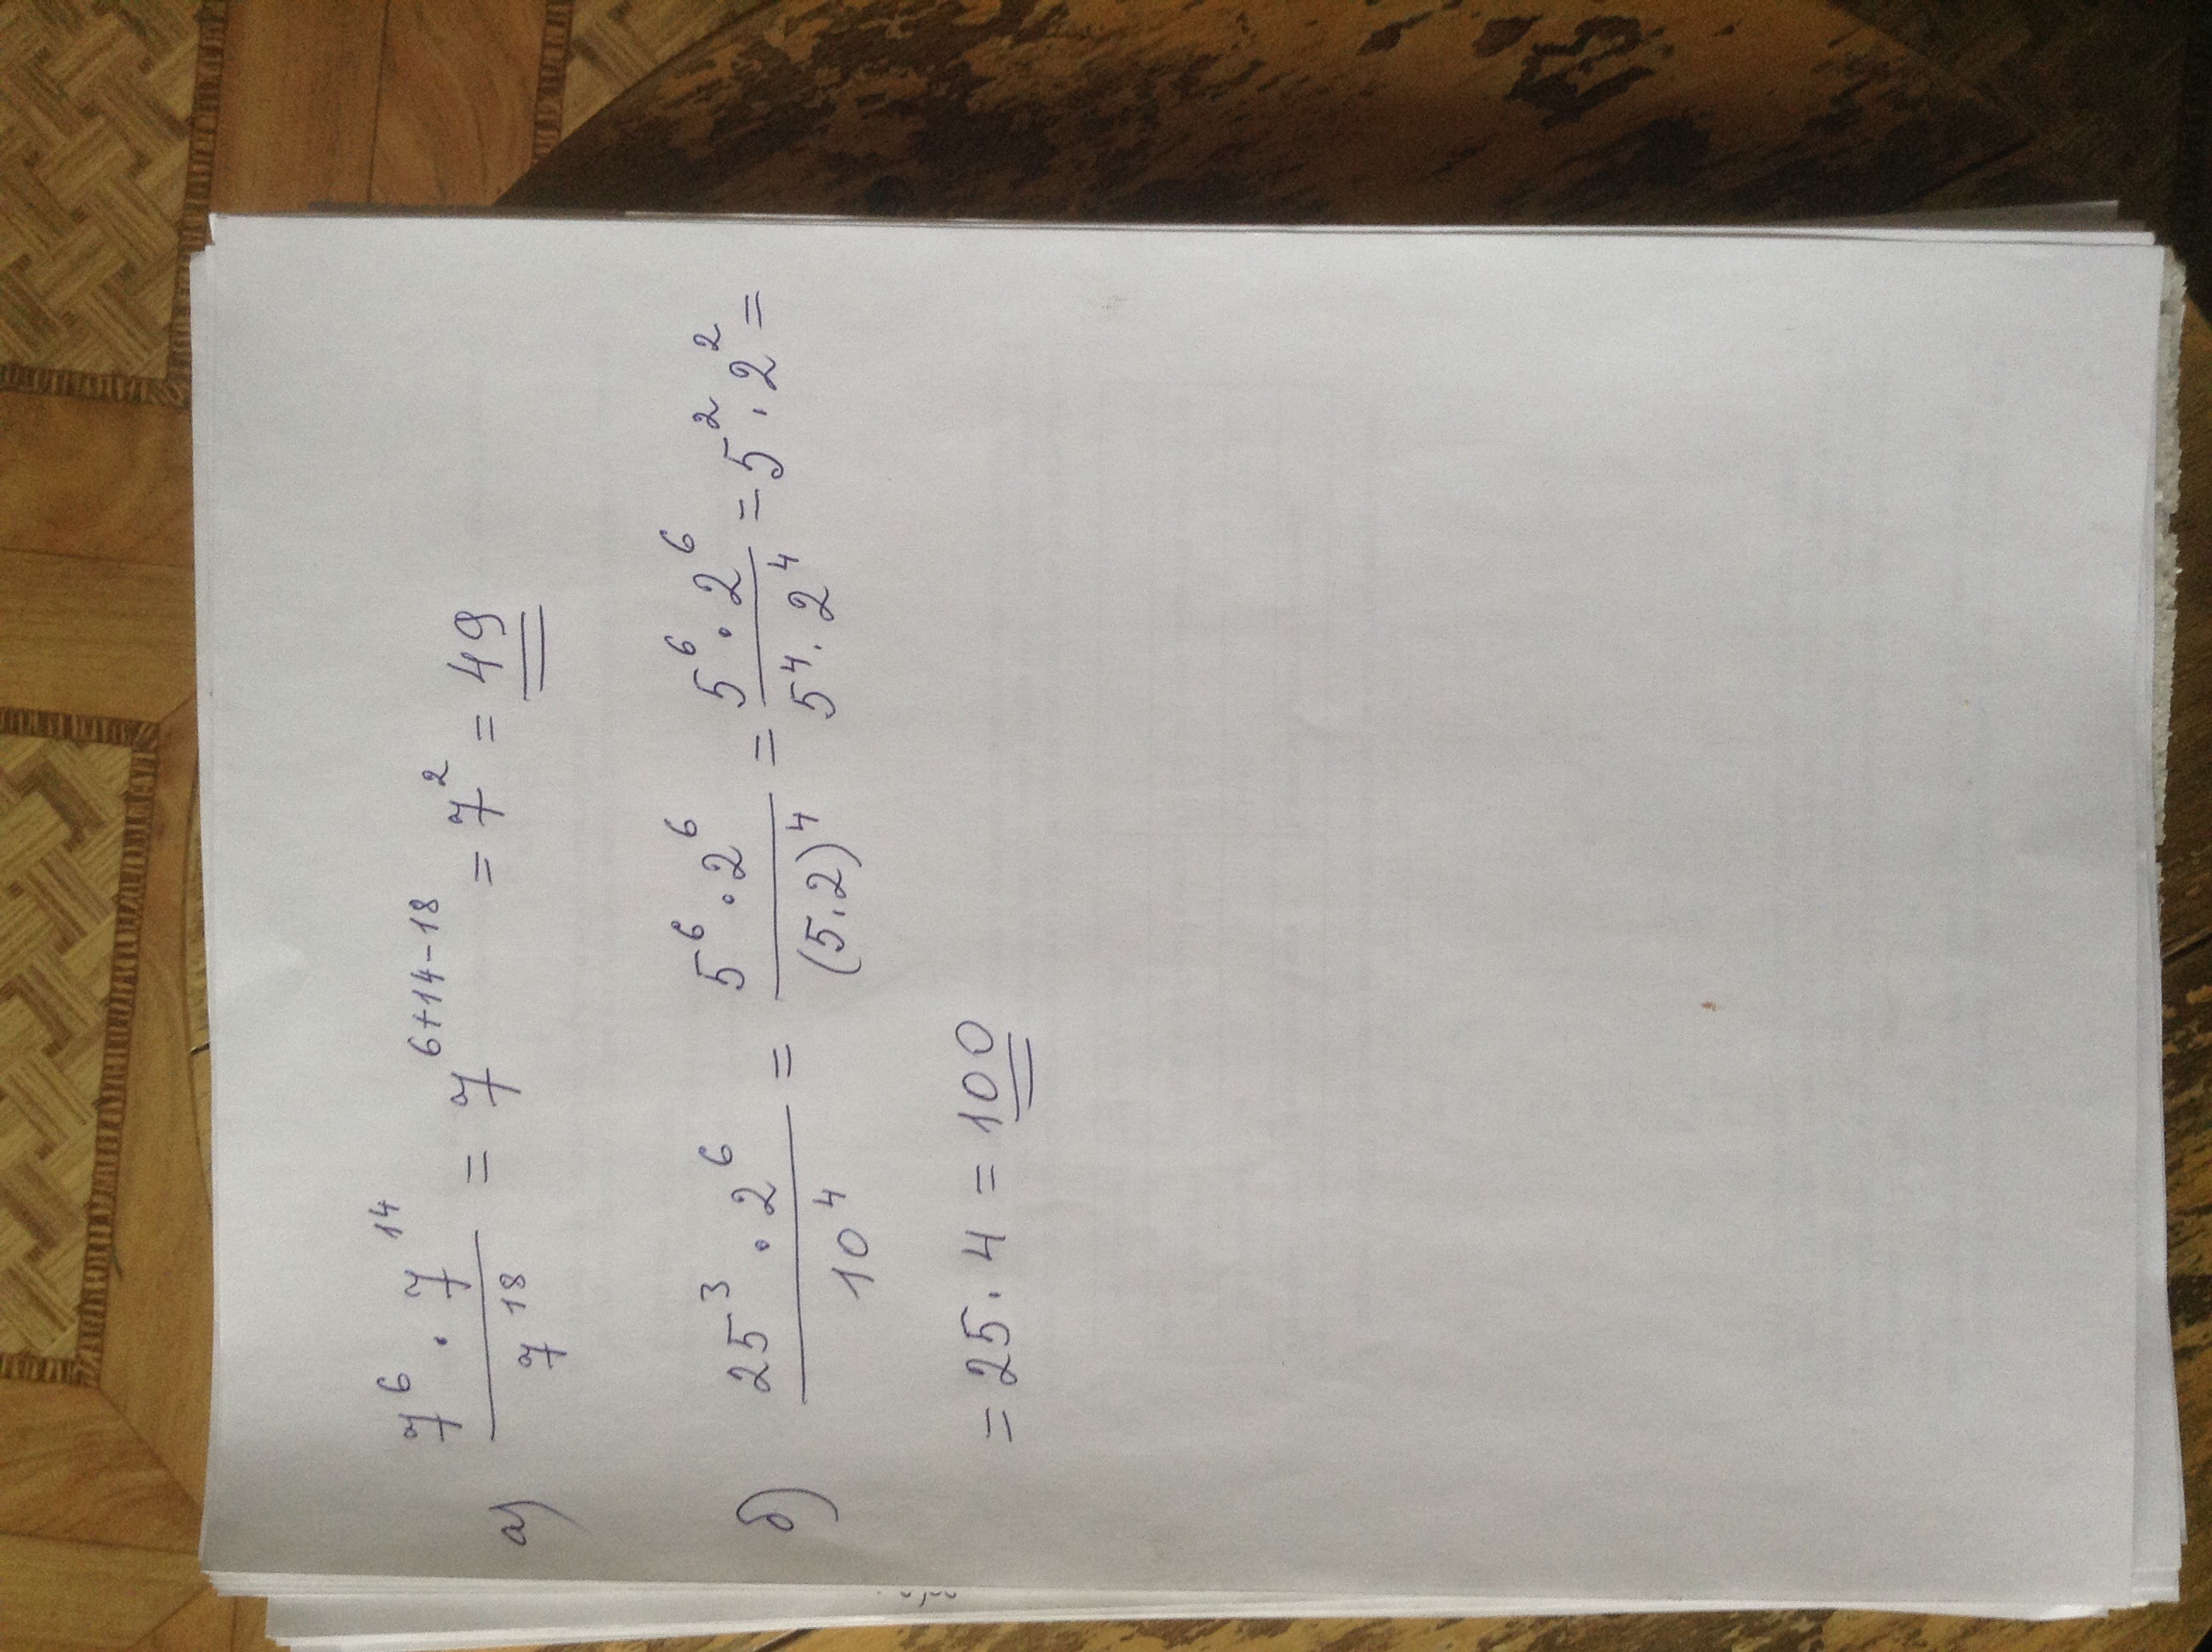 а) 7⁶ · 7¹⁴ / 7¹⁸ = 7⁶⁺¹⁴⁻¹⁸ = 7² = 49
б) 25³ · 2⁶ / 10⁴ = 5⁶ · 2⁶ / (5·2)⁴ = 5⁶ · 2⁶ / 5⁴ · 2⁴ = 5² · 2² =
= 25 · 4 = 100